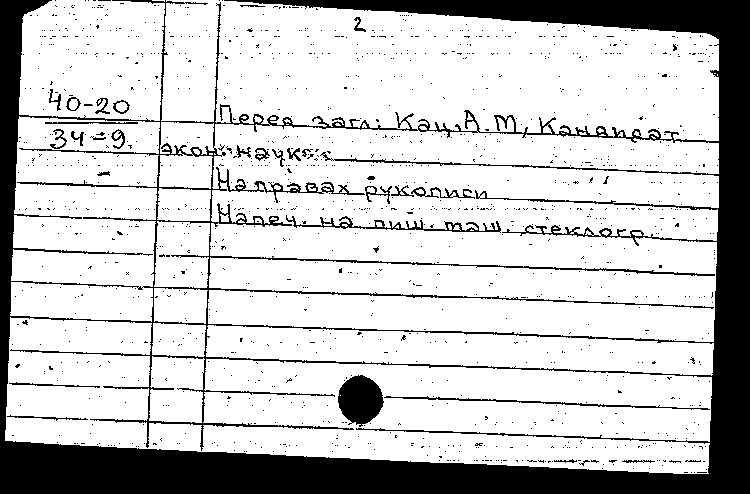 2
40-20
34-9
Перед загл: Кац, А. М, Кандидат
экон. наук.
На правах рукописи
Напеч. на пиш. маш. стеклогр.